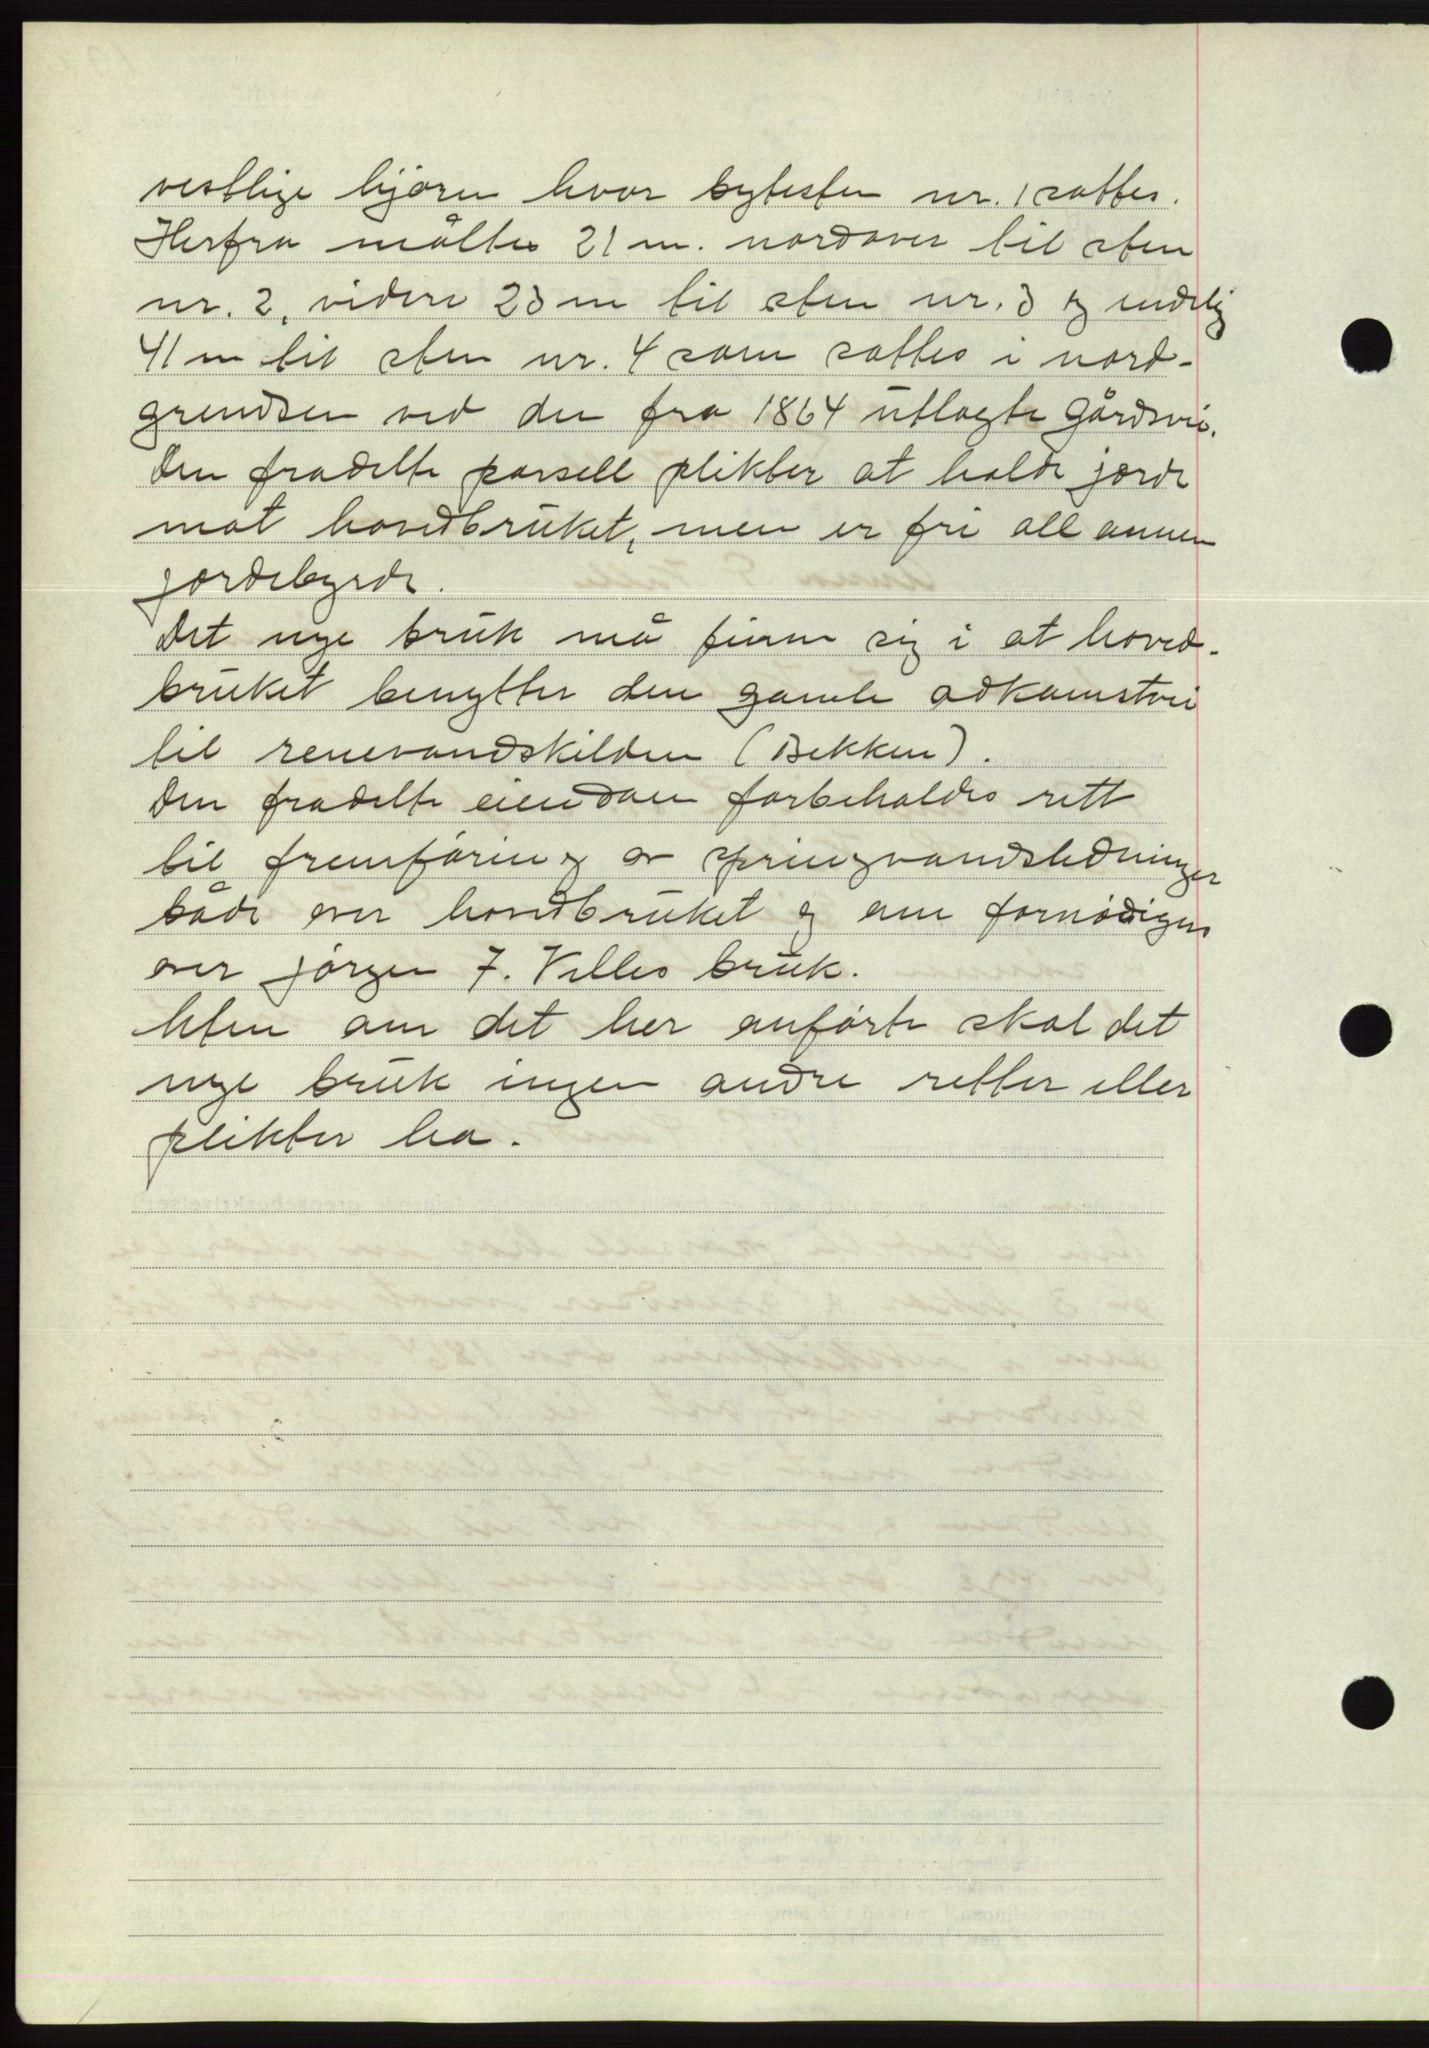 vestlige hjørne hvor bytesten nr. 1 sattes.
Herfra måltes 21 m. nordover til sten
nr. 2, videre 23 m til sten nr. 3 og endelig
41 m til sten nr. 4 som sattes i nord-
grendsen ved den fra 1864 utlagte gårdsvei.
Den fradelte parsell plikter at holde jorde
mot hovedbruket, men er fri all annen
jordebyrde.
Det nye bruk må finne sig i at hoved-
bruket benytter den gamle adkomstvei
til renevandskilden (Bekken).
Den fradelte eiendom forbeholdes rett
til fremføring av springvandsledninger
både over hovedbruket og om fornødigens
over Jørgen J. Velles bruk.
Uten om det her anførte skal det
nye bruk ingen andre retter eller
plikter ha.